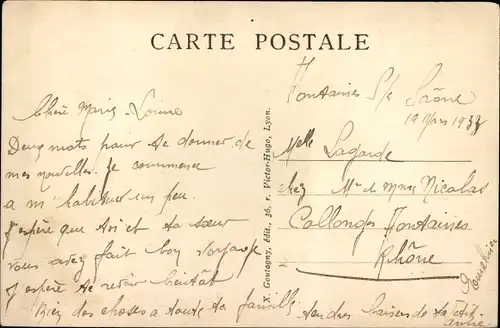 CARTE POSTALE
Chère Marie Louise
Deux mots pour te donner de
mes nouvelles. Je commence
a m'habituer un peu.
J'espère que toi et ta sœur
vous avez fait bon voyage
J'espère te revoir bientôt
Bien des choses a toute ta famille
tendres baisers de ta petite
amie
X. Goutagny, édit., 36, r. Victor-Hugo, Lyon.
Fontaines S/s Saône
19 Mars
Melle Lagarde
chez Mr
Nicolas
Collonges Fontaines
Rhône